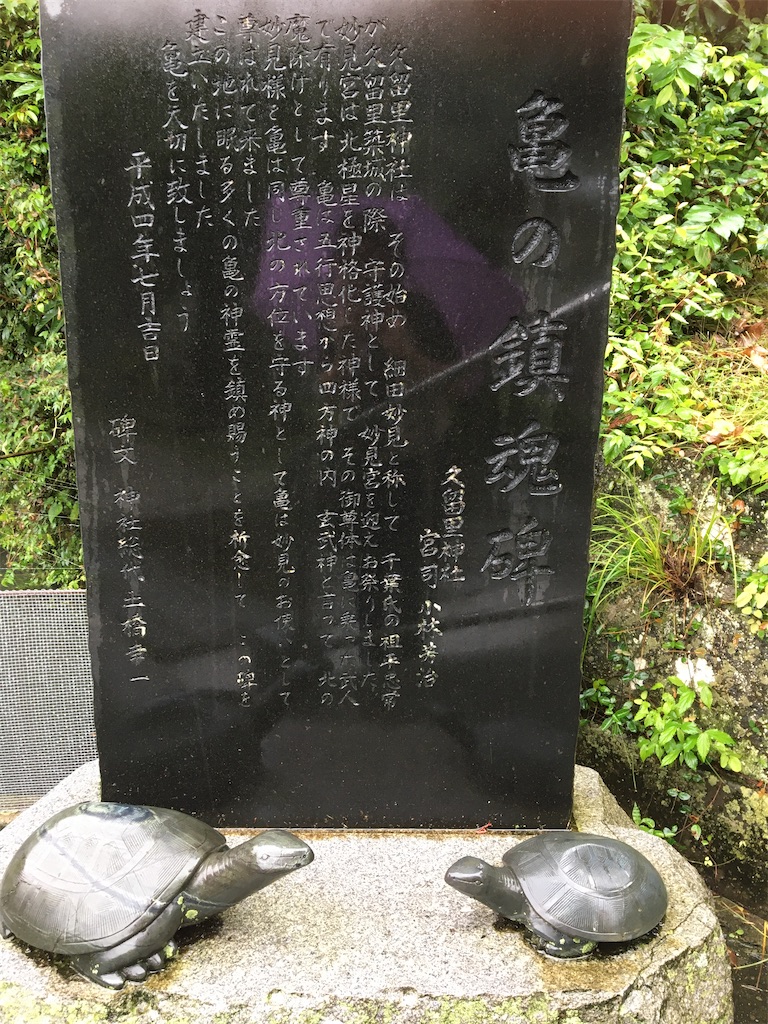 亀の鎮魂碑
久留里神社
宮司 小林芳治
久留里神社は その始め 細田妙見と称して 千葉氏の祖平忠常
が久留里築城の際 守護神として 妙見宮を迎えお祭りしました
妙見宮は北極星を神格化した神様で その御尊体は亀に乗った武人
で有ります 亀は五行思想から四方神の内 玄武神と言って 北の
魔除けとして尊重されています
妙見様と亀は同じ北の方位を守る神として亀は妙見のお使いとして
尊ばれて来ました
この地に眠る多くの亀の神霊を鎮め賜うことを祈念して この碑を
建立いたしました
亀を大切に致しましょう
平成四年七月吉日
碑文 神社総代 土橋幸一